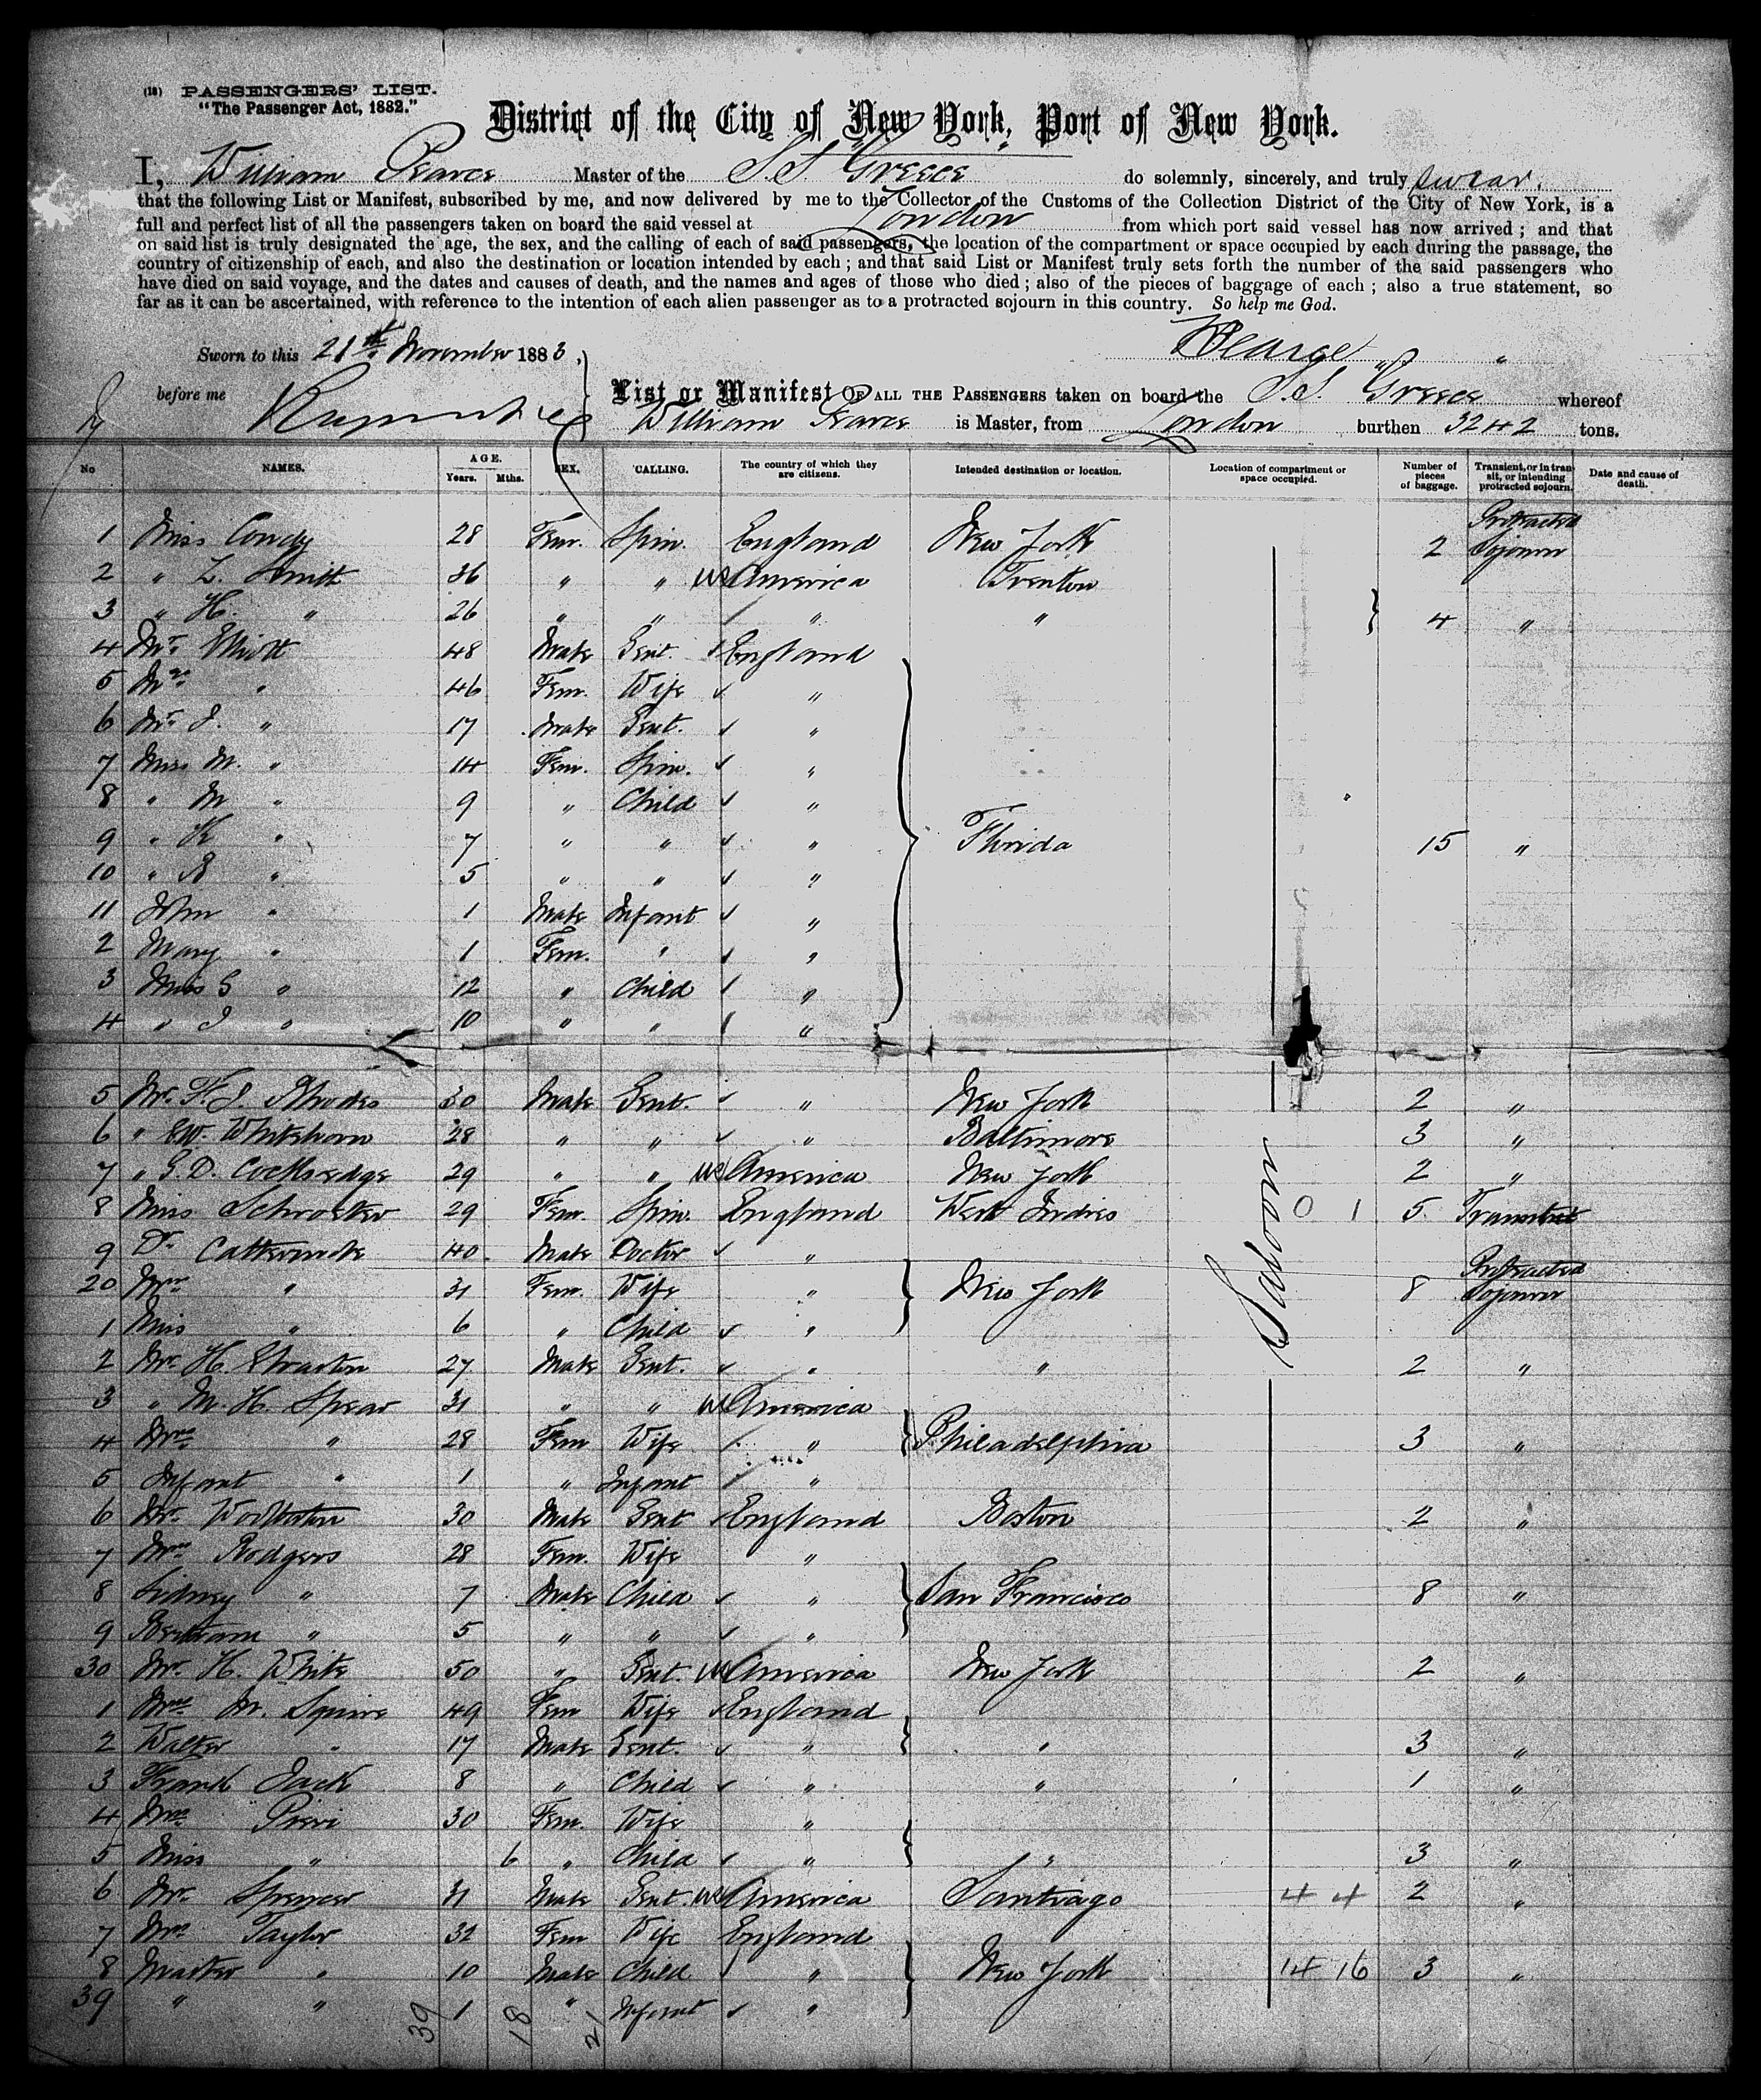 (18) PASSENGERS' LIST.
"The Passenger Act, 1882."
District of the City of New York, Port of New York.
I, William Pearce Master of the S.S. "Greece" do solemnly, sincerely, and truly swear.
that the following List or Manifest, subscribed by me, and now delivered by me to the Collector of the Customs of the Collection District of the City of New York, is a
full and perfect list of all the passengers taken on board the said vessel at London from which port said vessel has now arrived; and that
on said list is truly designated the age, the sex, and the calling of each of said passengers, the location of the compartment or space occupied by each during the passage, the
country of citizenship of each, and also the destination or location intended by each; and that said List or Manifest truly sets forth the number of the said passengers who
have died on said voyage, and the dates and causes of death, and the names and ages of those who died; also of the pieces of baggage of each; also a true statement, so
far as it can be ascertained, with reference to the intention of each alien passenger as to a protracted sojourn in this country. So help me God.
Sworn to this 21st November 1883 WPearce
before me
List or Manifest OF ALL THE PASSENGERS taken on board the S.S. "Greece" whereof
William Pearce is Master, from London burthen 3242 tons.
No NAMES. AGE. Years. Mths. SEX. CALLING. The country of which they are citizens. Intended destination or location. Location of compartment or space occupied. Number of pieces of baggage. Transient, or in transit, or intending protracted sojourn. Date and cause of death.
1 Miss Condy 28 Fem. Spin. England New York 2 Protracted Sojourn
2 " L. Smith 36 " " US America Trenton
3 " H. " 26 " " " " 4 "
4 Mr. Elliott 48 Male Gent. England
5 Mrs " 46 Fem. Wife "
6 Mr. J. " 17 Male Gent. "
7 Miss M. " 14 Fem. Spin. "
8 " M " 9 " Child "
9 " K " 7 " " " Florida 15 "
10 " " 5 " " "
11 John " 1 Male Infant "
2 Mary " 1 Fem. " "
3 Miss G " 12 " Child "
4 " J " 10 " " "
5 Mr. F. J Rhodes 30 Male Gent. " New York 2 "
6 " Whitehorn 28 " " " Baltimore 3 "
7 " G. D. 29 " " US America New York 2 "
8 Miss 29 Fem. Spin. England West Indies 0 1 5 Transient
9 Dr. Cattermole 40 Male Doctor "
20 Mrs " 31 Fem. Wife " New York 8 Protracted Sojourn
1 Miss " 6 " Child "
2 Mr. H. 27 Male Gent. " " 2 "
3 " M. H. Spear 31 " " US America
4 Mrs " 28 Fem Wife " Philadelphia 3 "
5 Infant " 1 " Infant "
6 Mr. 30 Male Gent England Boston 2 "
7 Mrs Rodgers 28 Fem. Wife "
8 Sidney " 7 Male Child " San Francisco 8 "
9 Bertram " 5 " " "
30 Mr. H. White 50 " Gent. US America New York 2 "
1 Mrs M. Squire 49 Fem Wife England
2 Walter " 17 Male Gent. " " 3 "
3 Frank Jack 8 " Child " " 1 "
4 Mrs 30 Fem. Wife "
5 Miss " 6 " Child " " 3 "
6 Mr. Spencer 31 Male Gent. US America Santiago 4 4 2 "
7 Mrs Taylor 32 Fem Wife England
8 Master " 10 Male Child " New York 14 16 3 "
39 " " 1 " Infant "
Saloon
39 18 21